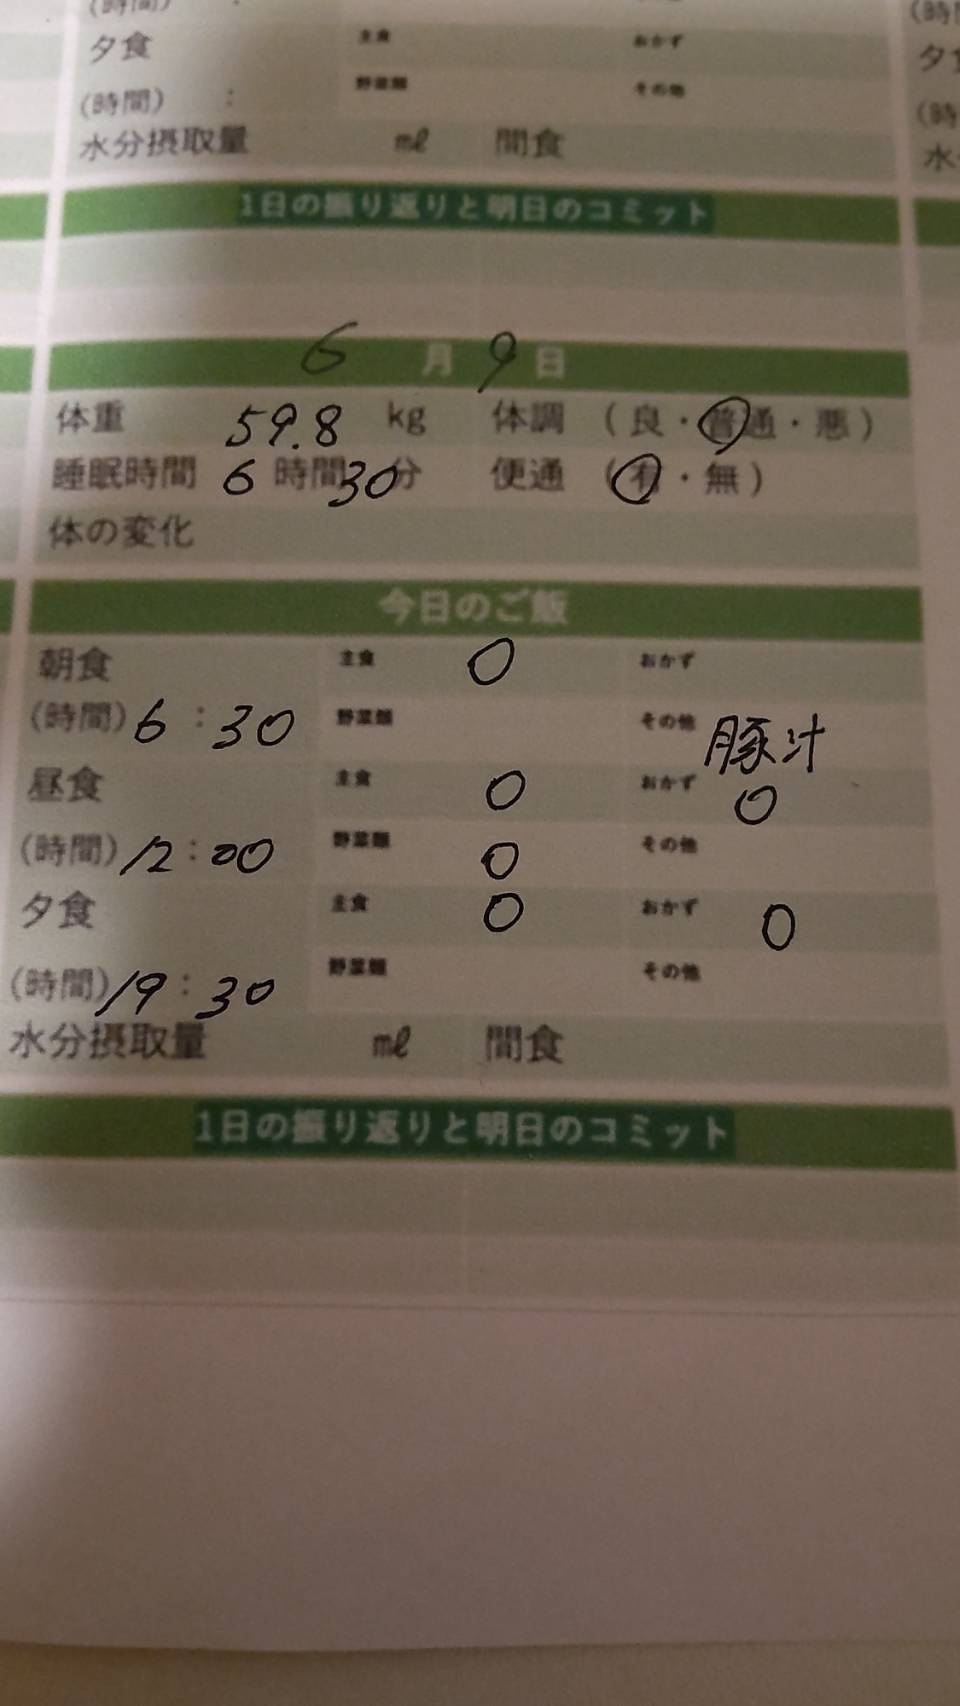 (時間) :
夕食 主食 おかず
(時間) : 野菜類 その他
水分摂取量 ㎖ 間食
1日の振り返りと明日のコミット
6月9日
体重 59.8 kg 体調 (良・普通・悪)
睡眠時間 6時間30分 便通 (有・無)
体の変化
今日のご飯
朝食 主食 〇 おかず
(時間) 6:30 野菜類 その他 豚汁
昼食 主食 〇 おかず 〇
(時間) 12:00 野菜類 〇 その他
夕食 主食 〇 おかず 〇
(時間) 19:30 野菜類 その他
水分摂取量 ㎖ 間食
1日の振り返りと明日のコミット